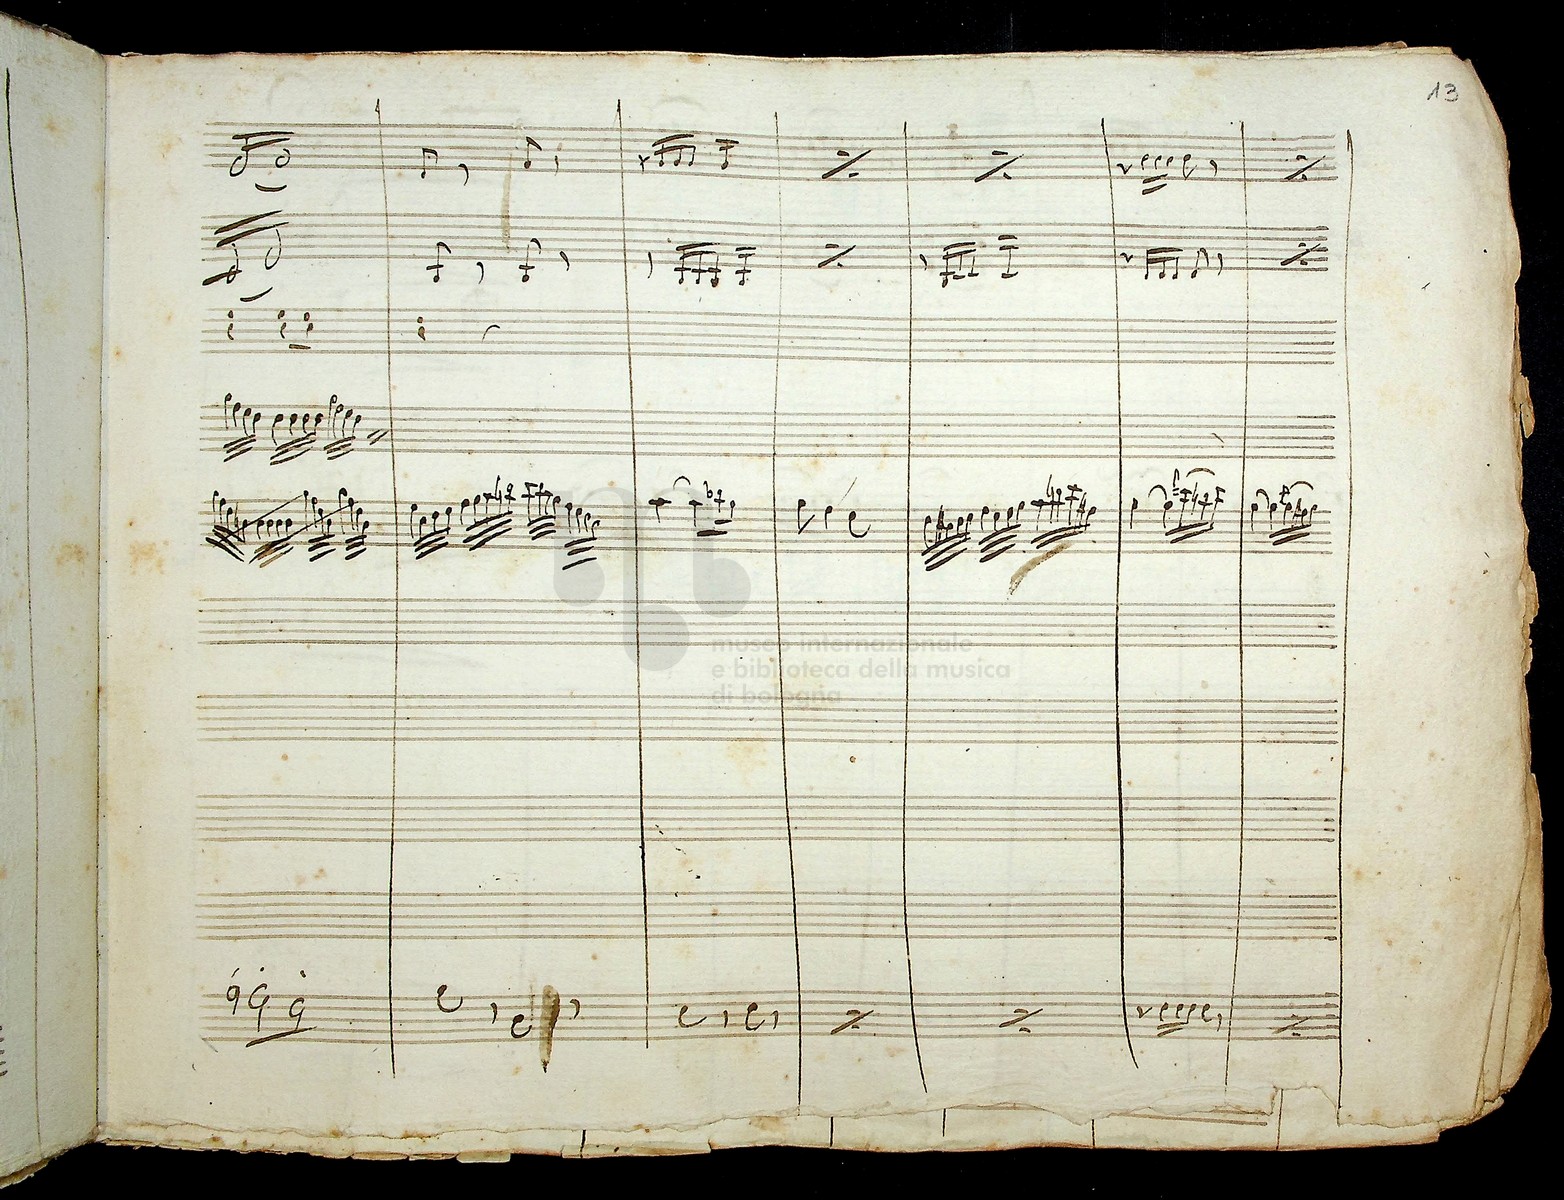 13
museo internazionale
e biblioteca della musica
di bologna